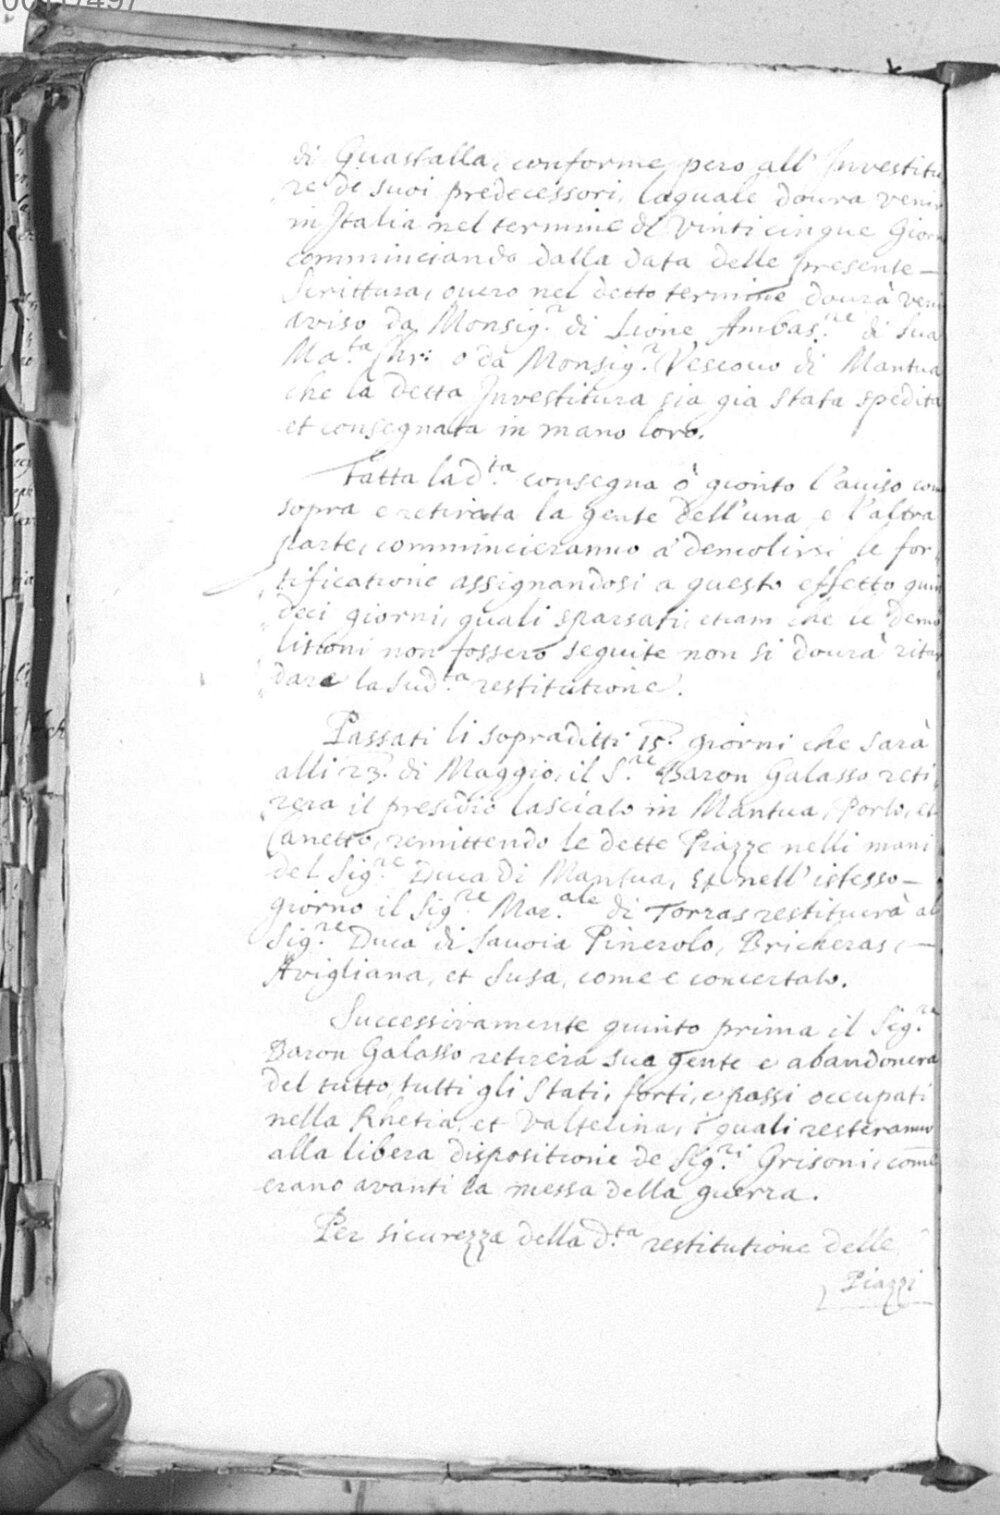 di Guastalla, conforme pero all' Investitu
re de suoi predecessori, laquale doura venir
in Italia nel termine di vinti cinque Giorn
comminciando dalla data delle presente
Scrittura, ouero nel detto termine dourà veni
aviso da Monsig.r di Lione Ambas.re di Sua
Ma.ta Chr: o da Monsig.r Vescouo di Mantua
che la detta Investitura sia gia stata spedita
et consegnata in mano loro.
Fatta la d.ta consegna ò gionto l'auiso com
sopra e retirata la gente dell'una, e l'altra
parte, commincieranno a demolirsi le for
tificatione assignandosi a questo effetto quin
deci giorni, quali sparsati, etiam che le demo
litioni non fossero seguite non si dourà ritar
dare la sud.ta restitutione.
Passati li sopraditti 15. giorni che sarà
alli 23. di Maggio, il S.re Baron Galasso reti
rera il presidio lasciato in Mantua, Porto, et
Canetto, remittendo le dette Piazze nelli mani
del Sig.re Duca di Mantua, Et nell'istesso
giorno il Sig.re Mar.ale di Torras restituerà al
Sig.re Duca di Sauoia Pinerolo, Bricheras,
Avigliana, et Susa, come e concertato.
Successivamente quinto prima il Sig.re
Baron Galasso retirera sua gente e abandonera
del tutto, tutti gli Stati, forti, e passi occupati
nella Rhetia, et Valtelina, i quali resteranno
alla libera dispositione de Sig.ri Grisoni, come
erano avanti la messa della guerra.
Per sicurezza della d.ta restitutione delle
Piazzi